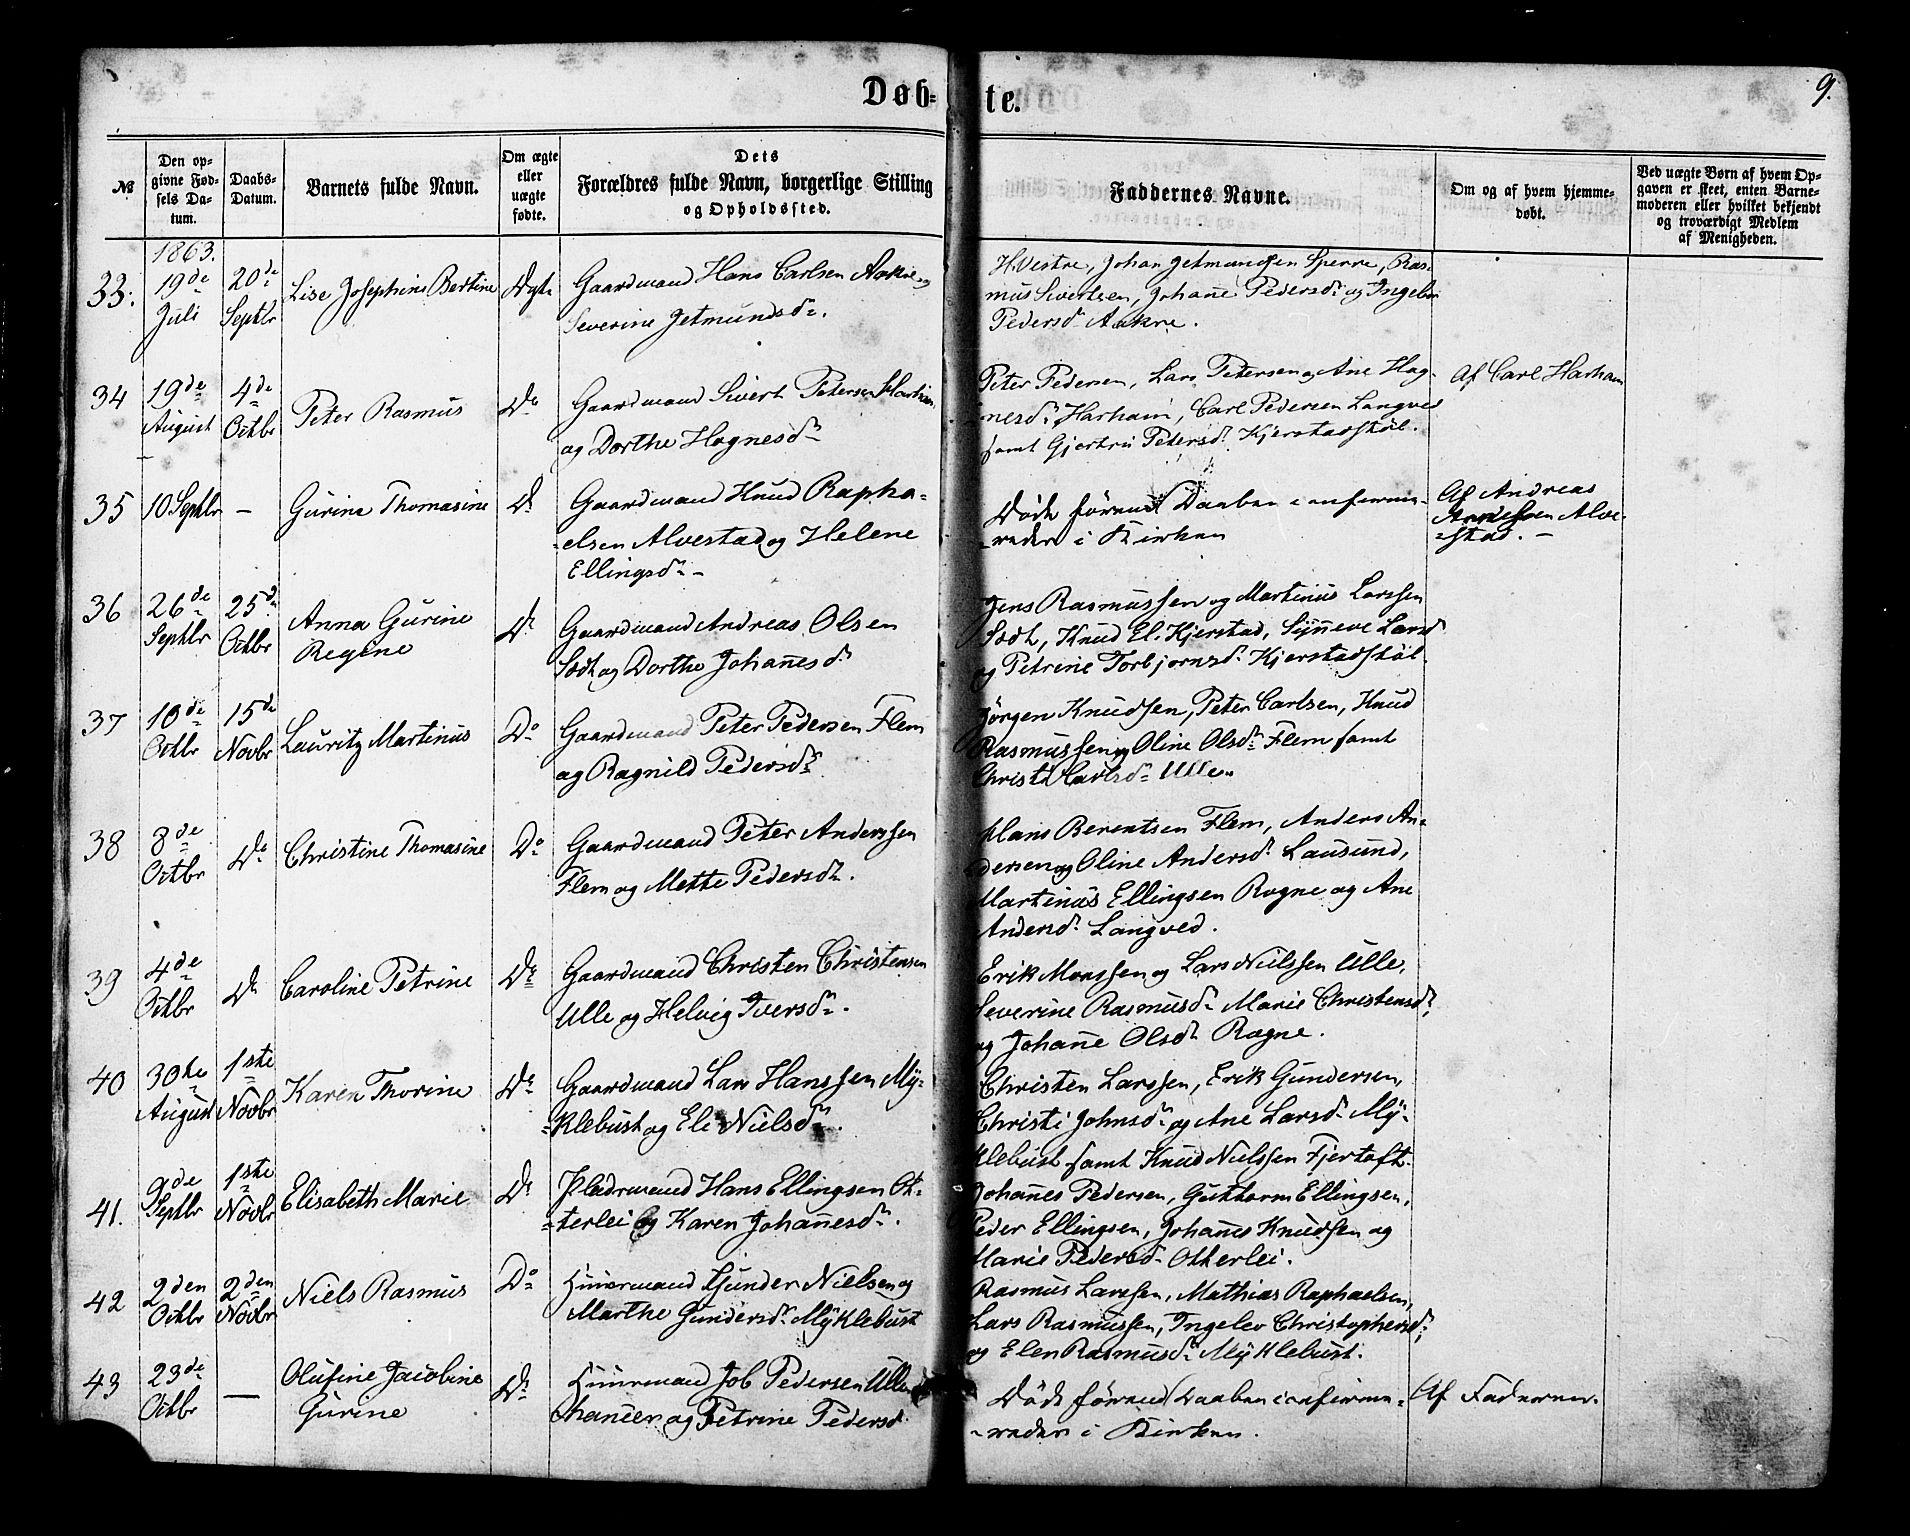 Døb-te.
9.
№
Den op-
givne Fød-
sels Da-
tum.
Daabs-
Datum.
Barnets fulde Navn.
Om ægte
eller
uægte
fødte.
Dets
Forældres fulde Navn, borgerlige Stilling
og Opholdssted.
Faddernes Navne.
Om og af hvem hjemme-
døbt.
Ved uægte Børn af hvem Op-
gaven er skeet, enten Barne-
moderen eller hvilket bekjendt
og troværdigt Medlem
af Menigheden.
1863.
33.
19de
Juli
20de
Septbr
Lise Josephine Bertine
Ægte
Gaardmand Hans Carlsen Aakre og
Severine Jetmundsdr.
H. Vestre, Johan Jetmundsen Sperre, Ras-
mus Sivertsen, Johanne Pedersdr og Ingebor
Pedersdr Aakre.
34
19de
August
4de
Octbr
Peter Rasmus
Do
Gaardmand Sivert Petersen Harham
og Dorthe Hagnesdr
Peter Pedersen, Lars Petersen og Ane Hag-
nesdr Harham, Carl Pedersen Langved
samt Gjertru Petersdr Kjerstadstøl.
Af Carl Harham
35
10 Septbr
-
Gurine Thomasine
Do
Gaardmand Knud Rapha-
elsen Alvestad og Helene
Ellingsdr -
Døde førend Daaben confirme-
redes i Kirken
Af Andreas
Alve-
stad. -
36
26de
Septbr
25de
Octbr
Anna Gurine
Regine
Do
Gaardmand Andreas Olsen
Sødt og Dorthe Johannesdr
Jens Rasmussen og Martinus Larssen
Sødt, Knud El. Kjerstad, Synneve Larsdr
og Petrine Torbjørnsdr Kjerstadstøl
37
10de
Octbr
15de
Novbr
Lauritz Martinus
Do
Gaardmand Peter Pedersen Flem
og Ragnild Pedersdr
Jørgen Knudsen, Peter Carlsen, Knud
Rasmussen og Oline Olsdr Flem samt
Christi Carlsdr Ulle.
38
8de
Octbr
Do
Christine Thomasine
Do
Gaardmand Peter Anderssen
Flem og Mette Pedersdr.
Hans Berentsen Flem, Anders An-
dersen og Oline Andersdr Lausund,
Martinus Ellingsen Rogne og Ane
Andersdr Langved.
39
4de
Octbr
Do
Caroline Petrine
Do
Gaardmand Christen Christensen
Ulle og Helvig Iversdr.
Erik Monssen og Lars Nielssen Ulle,
Severine Rasmusdr Marie Christensdr,
og Johanne Olsdr Rogne.
40
30te
August
1ste
Novbr
Karen Thorine
Do
Gaardmand Lars Hanssen My-
klebust og Eli Nielsdr.
Christen Larssen, Erik Gundersen,
Christi Johnsdr og Ane Larsdr My-
klebust samt Knud Nielssen Fjertoft.
41.
9de
Septbr
1ste
Novbr
Elisabeth Marie
Do
Pladsmand Hans Ellingsen Ot-
terlei og Karen Johannesdr.
Johannes Pedersen, Guttorm Ellingsen,
Peder Ellingsen, Johannes Knudsen og
Marie Pedersdr Otterlei.
42
2den
Octbr
2den
Novbr
Niels Rasmus
Do
Huusmand Gunder Nielsen og
Marthe Gundersdr Myklebust
Rasmus Larssen, Mathias Raphaelsen,
Lars Rasmussen, Ingelev Christophersdr,
og Elen Rasmusdr Myklebust.
43
23de
Octbr
-
Olufine Jacobine
Gurine
Do
Huusmand Job Pedersen Ulle
og Petrine Pedersd
Døde førend Daaben confirme-
redes i Kirken.
Af Faderen.